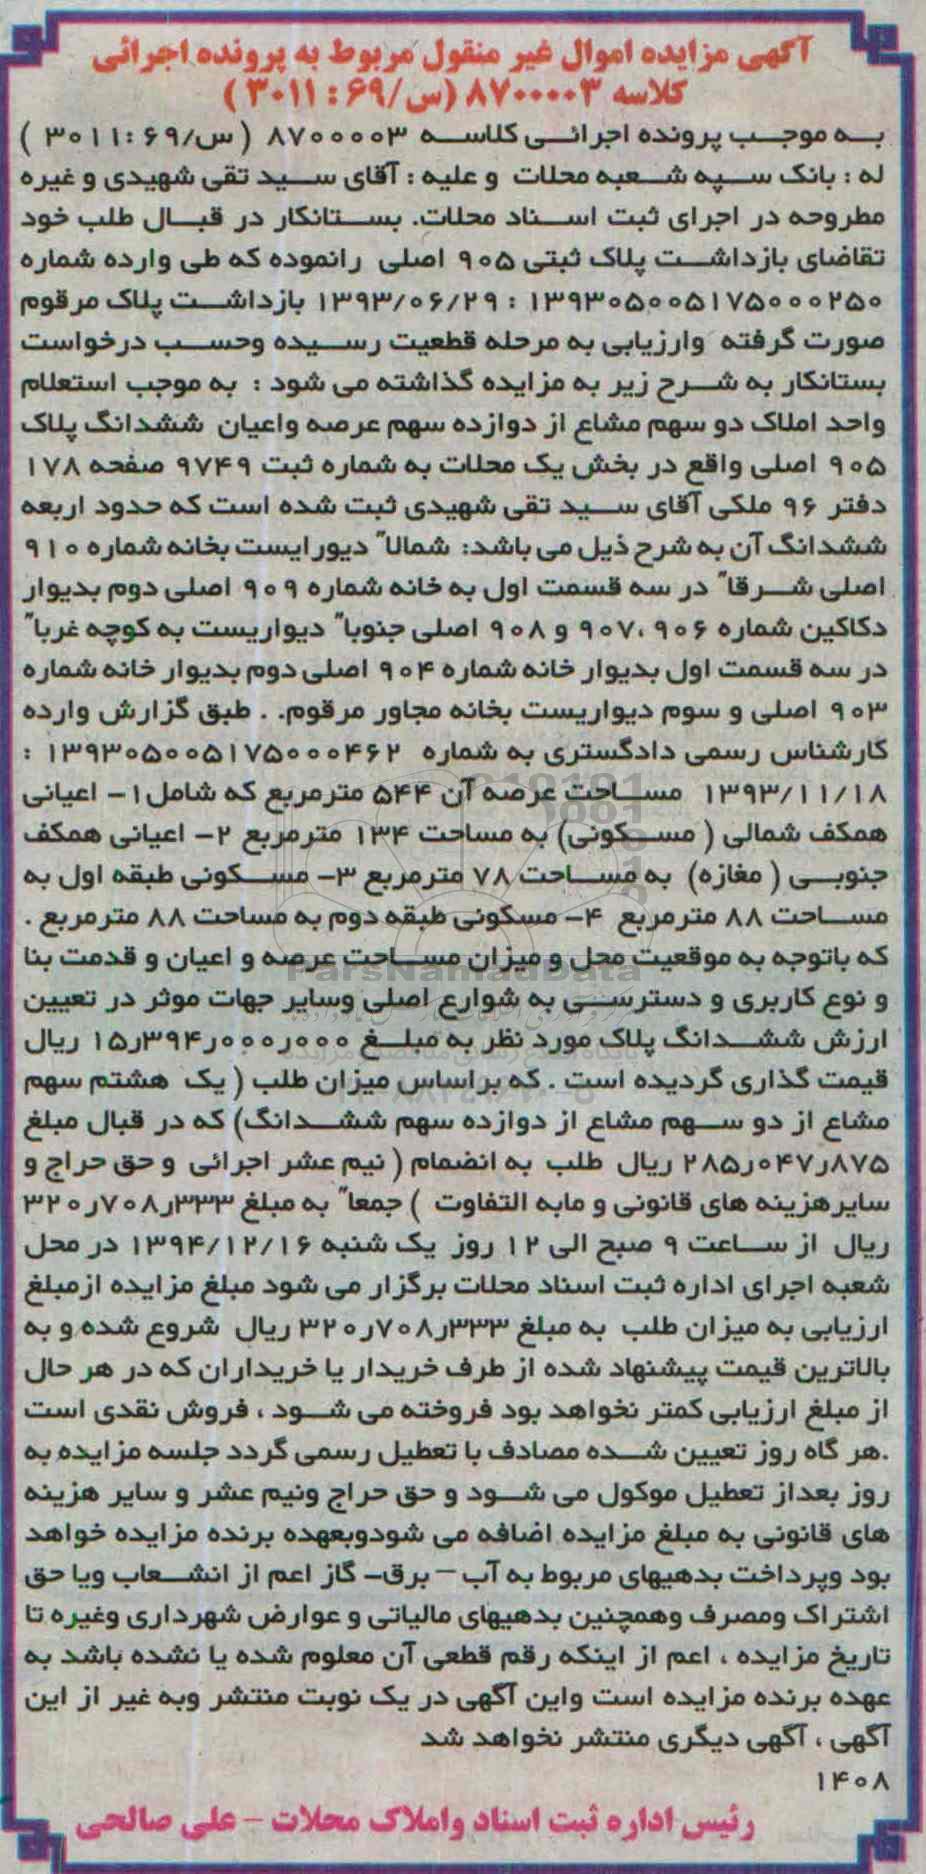 آگهی مزایده اموال غیر منقول مربوط به پرونده اجرائی
کلاسه ۸۷۰۰۰۰۳ (س/۶۹ : ۳۰۱۱ )
به موجب پرونده اجرائی کلاسه ۸۷۰۰۰۰۳ ( س/۶۹: ۳۰۱۱ )
له : بانک سپه شعبه محلات و علیه : آقای سید تقی شهیدی و غیره
مطروحه در اجرای ثبت اسناد محلات. بستانکار در قبال طلب خود
تقاضای بازداشت پلاک ثبتی ۹۰۵ اصلی رانموده که طی وارده شماره
۱۳۹۳۰۵۰۰۵۱۷۵۰۰۰۲۵۰ : ۱۳۹۳/۰۶/۲۹ بازداشت پلاک مرقوم
صورت گرفته وارزیابی به مرحله قطعیت رسیده وحسب درخواست
بستانکار به شرح زیر به مزایده گذاشته می شود : به موجب استعلام
واحد املاک دو سهم مشاع از دوازده سهم عرصه واعیان ششدانگ پلاک
۹۰۵ اصلی واقع در بخش یک محلات به شماره ثبت ۹۷۴۹ صفحه ۱۷۸
دفتر ۹۶ ملکی آقای سید تقی شهیدی ثبت شده است که حدود اربعه
ششدانگ آن به شرح ذیل می باشد: شمالا" دیورایست بخانه شماره ۹۱۰
اصلی شرقا" در سه قسمت اول به خانه شماره ۹۰۹ اصلی دوم بدیوار
دکاکین شماره ۹۰۶ ،۹۰۷ و ۹۰۸ اصلی جنوبا" دیواریست به کوچه غربا"
در سه قسمت اول بدیوار خانه شماره ۹۰۴ اصلی دوم بدیوار خانه شماره
۹۰۳ اصلی و سوم دیواریست بخانه مجاور مرقوم. . طبق گزارش وارده
کارشناس رسمی دادگستری به شماره ۱۳۹۳۰۵۰۰۵۱۷۵۰۰۰۴۶۲ :
۱۳۹۳/۱۱/۱۸ مساحت عرصه آن ۵۴۴ مترمربع که شامل۱- اعیانی
همکف شمالی ( مسکونی) به مساحت ۱۳۴ مترمربع ۲- اعیانی همکف
جنوبی ( مغازه) به مساحت ۷۸ مترمربع ۳- مسکونی طبقه اول به
مساحت ۸۸ مترمربع ۴- مسکونی طبقه دوم به مساحت ۸۸ مترمربع .
که باتوجه به موقعیت محل و میزان مساحت عرصه و اعیان و قدمت بنا
ParsNamadData
و نوع کاربری و دسترسی به شوارع اصلی وسایر جهات موثر در تعیین
ارزش ششدانگ پلاک مورد نظر به مبلغ ۱۵٫۳۹۴٫۰۰۰٫۰۰۰ ریال
قیمت گذاری گردیده است . که براساس میزان طلب ( یک هشتم سهم
مشاع از دو سهم مشاع از دوازده سهم ششدانگ) که در قبال مبلغ
۲۸۵٫۰۴۷٫۸۷۵ ریال طلب به انضمام ( نیم عشر اجرائی و حق حراج و
سایرهزینه های قانونی و مابه التفاوت ) جمعا" به مبلغ ۳۲۰٫۷۰۸٫۳۳۳
ریال از ساعت ۹ صبح الی ۱۲ روز یک شنبه ۱۳۹۴/۱۲/۱۶ در محل
شعبه اجرای اداره ثبت اسناد محلات برگزار می شود مبلغ مزایده ازمبلغ
ارزیابی به میزان طلب به مبلغ ۳۲۰٫۷۰۸٫۳۳۳ ریال شروع شده و به
بالاترین قیمت پیشنهاد شده از طرف خریدار یا خریداران که در هر حال
از مبلغ ارزیابی کمتر نخواهد بود فروخته می شود ، فروش نقدی است
.هر گاه روز تعیین شده مصادف با تعطیل رسمی گردد جلسه مزایده به
روز بعداز تعطیل موکول می شود و حق حراج ونیم عشر و سایر هزینه
های قانونی به مبلغ مزایده اضافه می شودوبعهده برنده مزایده خواهد
بود وپرداخت بدهیهای مربوط به آب – برق- گاز اعم از انشعاب ویا حق
اشتراک ومصرف وهمچنین بدهیهای مالیاتی و عوارض شهرداری وغیره تا
تاریخ مزایده ، اعم از اینکه رقم قطعی آن معلوم شده یا نشده باشد به
عهده برنده مزایده است واین آگهی در یک نوبت منتشر وبه غیر از این
آگهی ، آگهی دیگری منتشر نخواهد شد
۱۴۰۸
رئیس اداره ثبت اسناد واملاک محلات - علی صالحی